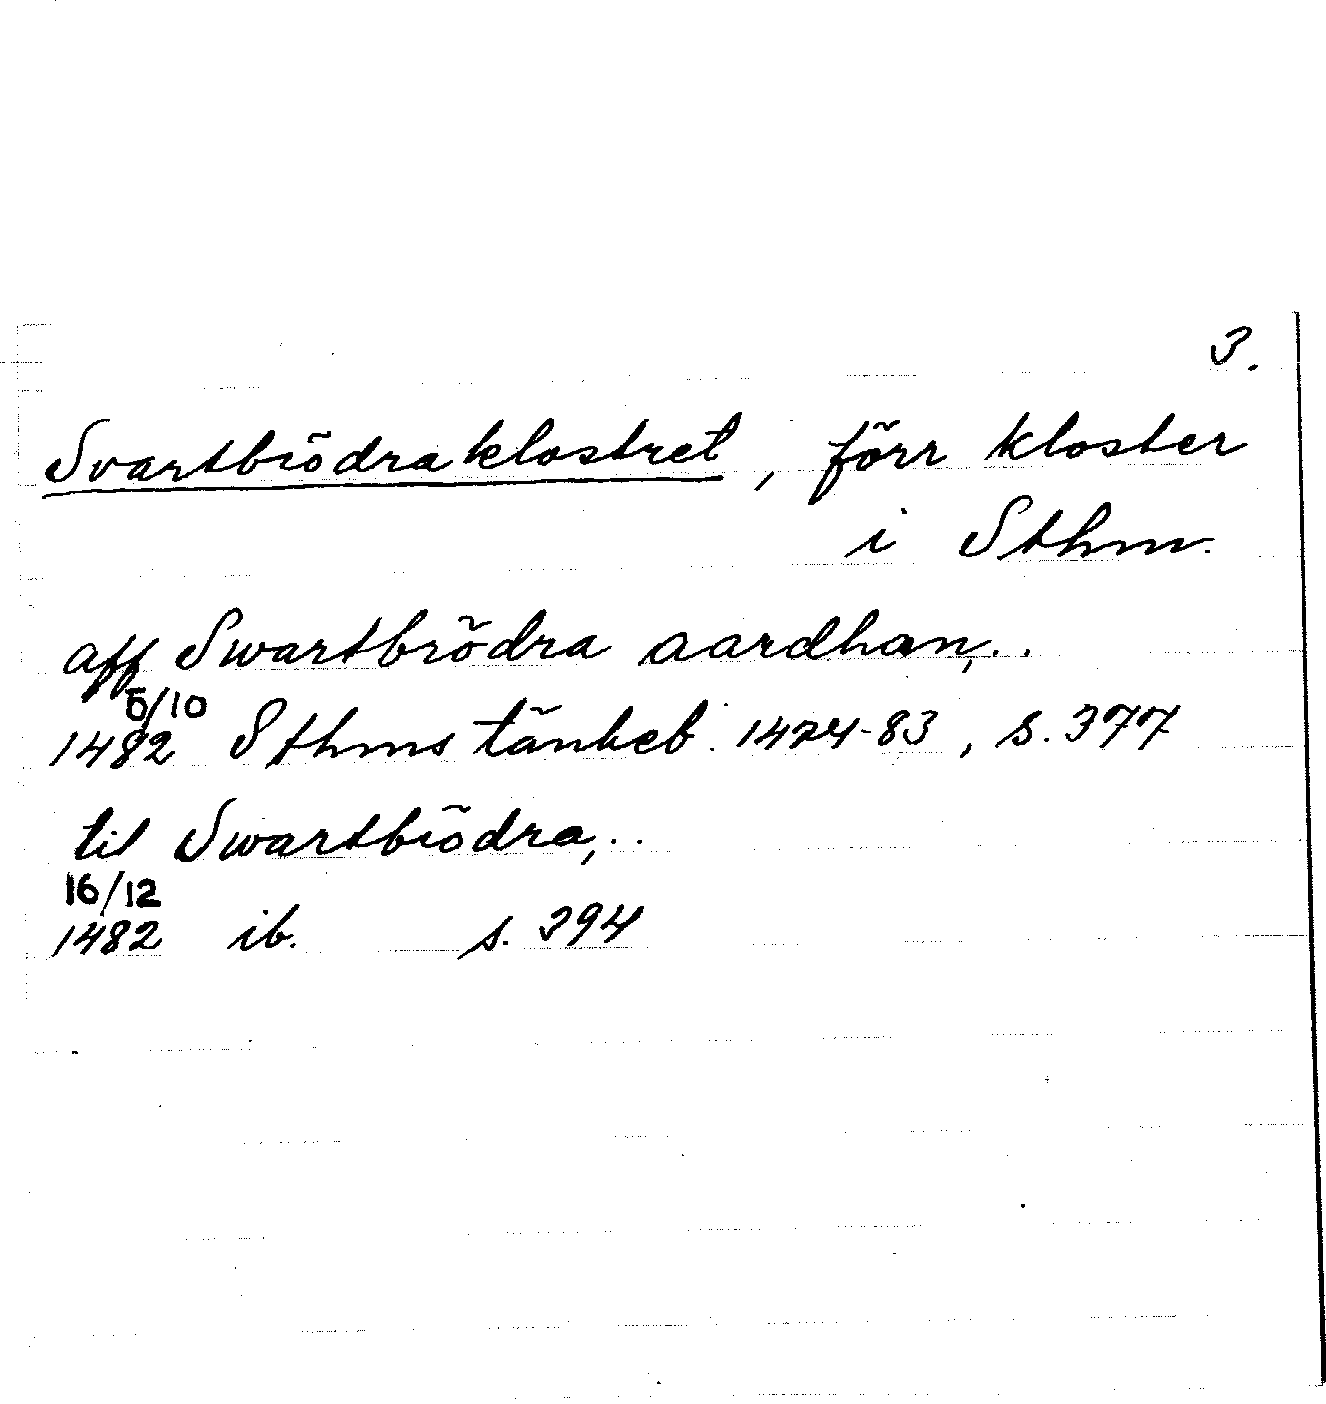 3.
Svartbrödraklostret, förr kloster
i Sthm.
aff Swartbrödra aardhan,..
5/10
1482 Sthms tänkeb. 1474-83, s. 377
til Swartbrödra,..
16/12
1482 ib. s. 394